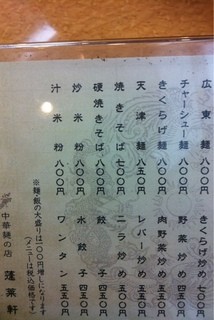 広東麺 八〇〇円
チャーシュー麺 八〇〇円
きくらげ麺 八〇〇円
天津麺 八〇〇円
焼きそば 七〇〇円
硬焼きそば 八〇〇円
炒米粉 八〇〇円
汁米粉 八〇〇円
きくらげ炒め 七〇〇円
野菜炒め 五五〇円
肉野菜炒め 五五〇円
レバー炒め 五五〇円
ニラ炒め 五〇〇円
餃子 四五〇円
水餃子 四五〇円
ワンタン 五五〇円
※麺・飯の大盛りは一〇〇円増しになります
(メニューは税込価格です)
中華麺の店 蓬莱軒